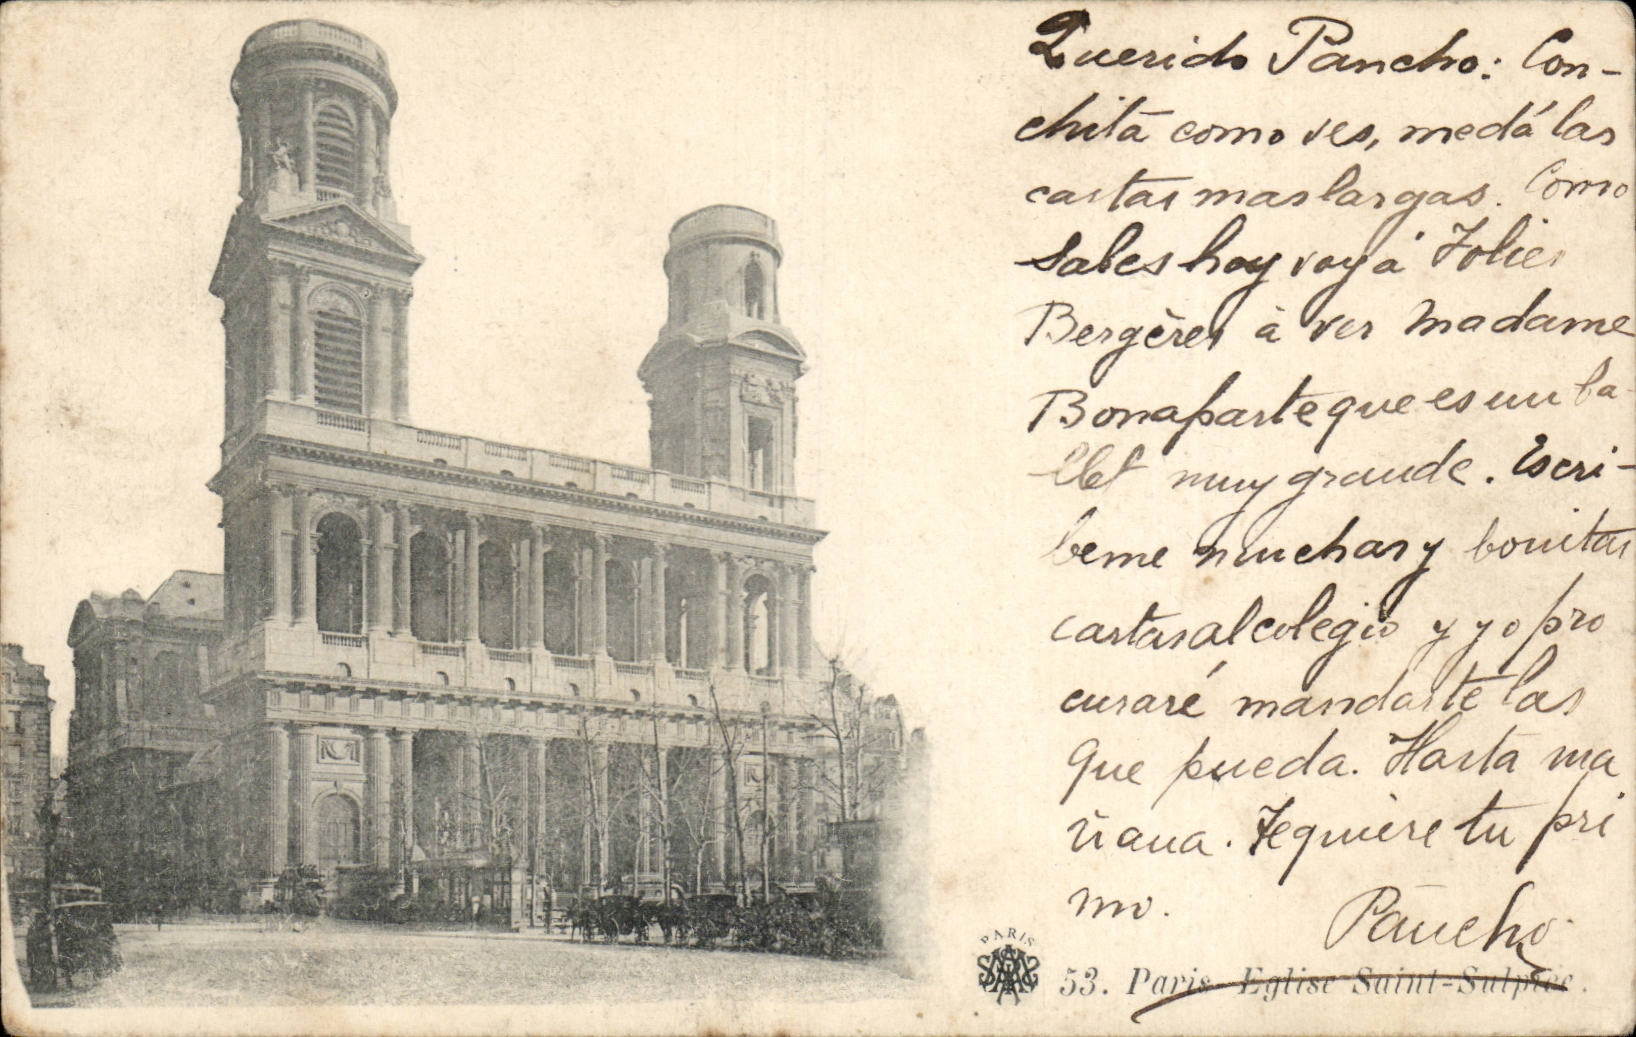 Querido Pancho: Con-
chita como ves, me dá las
cartas mas largas. Como
sabes hoy voy á Folies
Bergères à ver Madame
Bonaparte que es un ba-
llet muy grande. Escri-
beme muchas y bonitas
cartas al colegio y yo pro
curaré mandarte las
que pueda. Hasta ma
ñana. Te quiere tu pri
mo.
Pancho
PARIS
53. Paris - Eglise Saint-Sulpice.